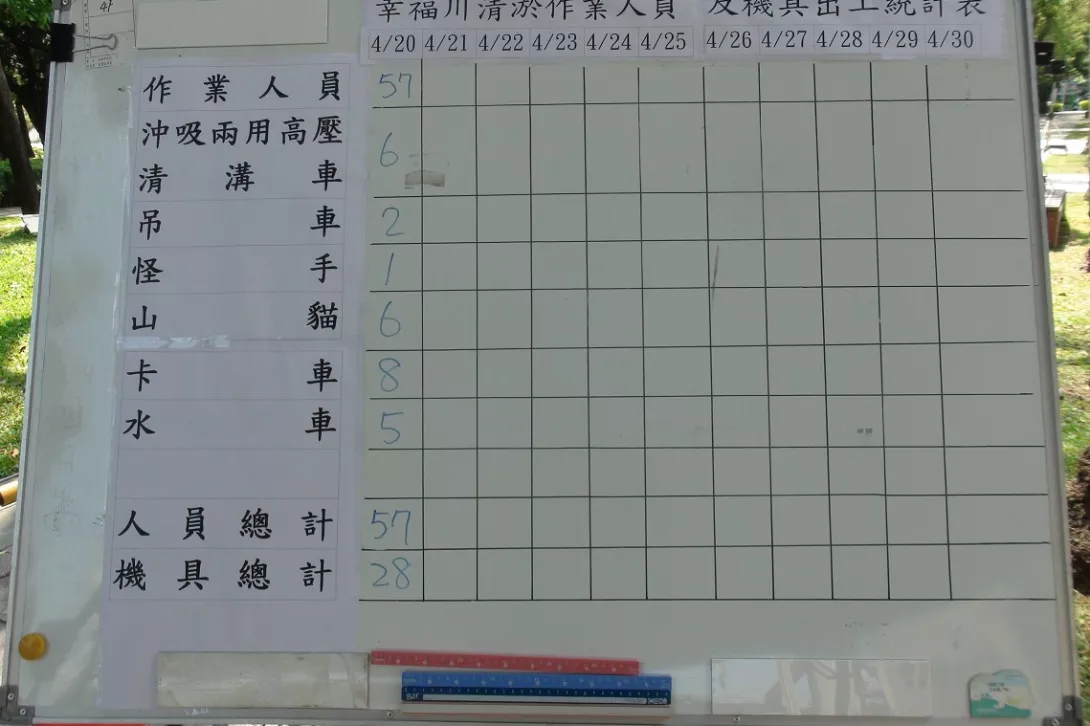 幸福川清淤作業人員 及機具出工統計表
4/20 4/21 4/22 4/23 4/24 4/25 4/26 4/27 4/28 4/29 4/30
作業人員 57
沖吸兩用高壓
清溝車 6
吊車 2
怪手 1
山貓 6
卡車 8
水車 5
人員總計 57
機具總計 28